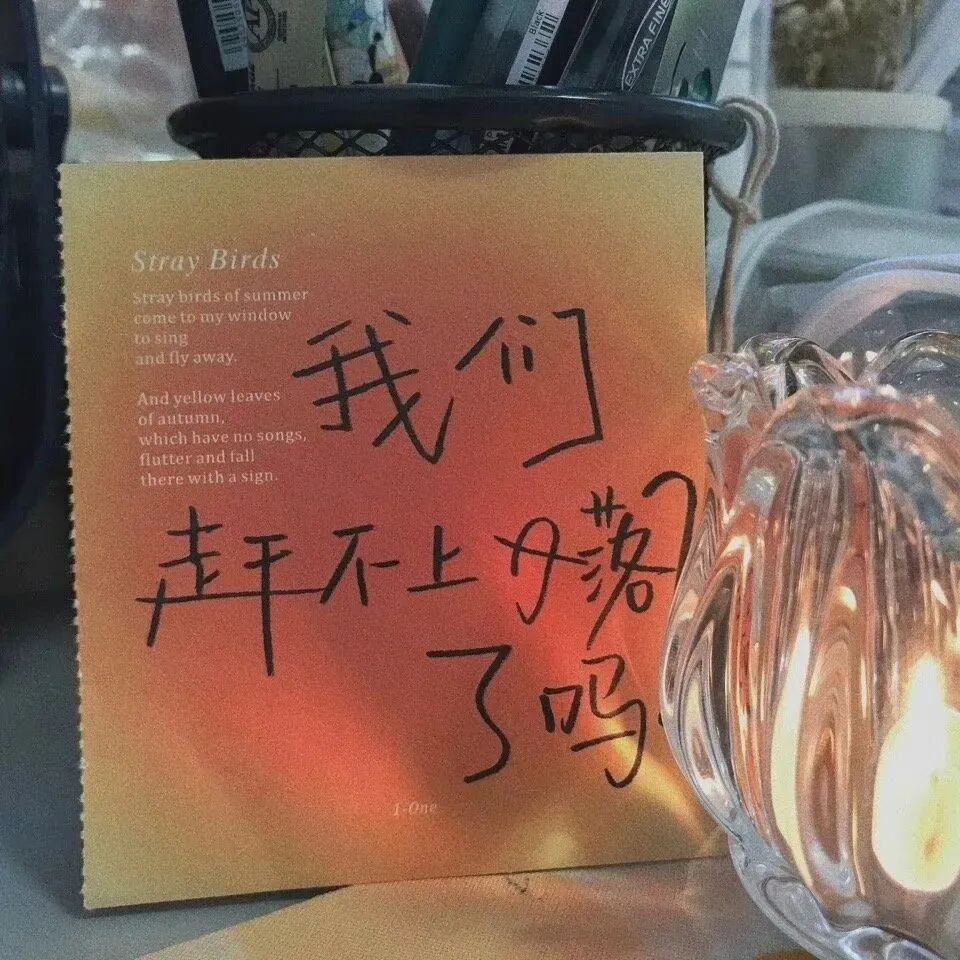 Black
EXTRA FINE
Stray Birds
Stray birds of summer
come to my window
to sing
and fly away.
And yellow leaves
of autumn,
which have no songs,
flutter and fall
there with a sign.
我们
赶不上落
了吗
1-One